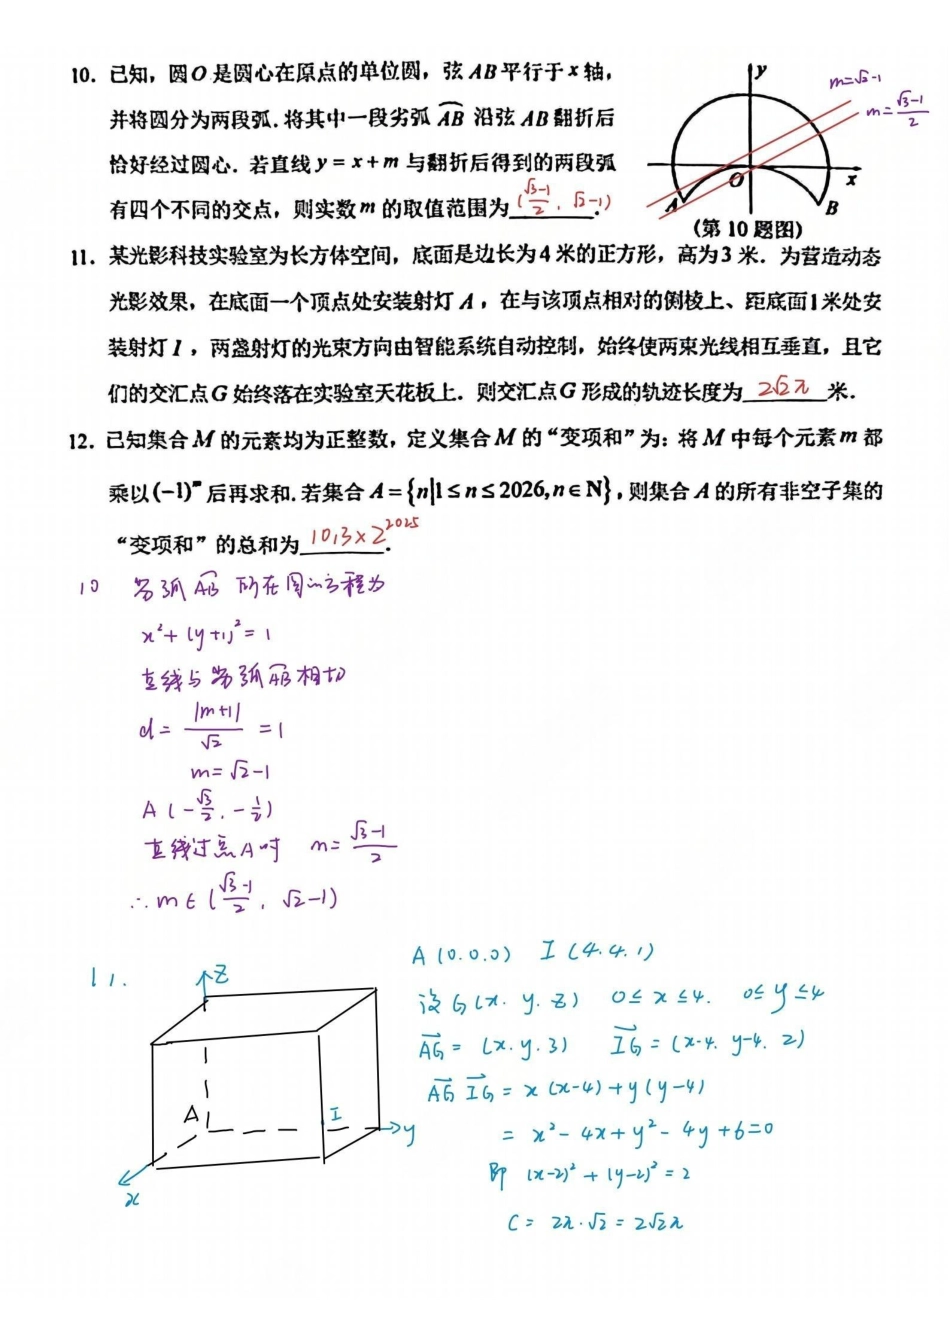 10. 已知，圆O是圆心在原点的单位圆，弦AB平行于x轴，
并将圆分为两段弧.将其中一段劣弧 $\overset{\frown}{AB}$ 沿弦AB翻折后
恰好经过圆心. 若直线y=x+m与翻折后得到的两段弧
有四个不同的交点，则实数m的取值范围为 ($\frac{\sqrt{3}-1}{2}$, $\sqrt{2}-1$) .
y
m=$\sqrt{2}$-1
m=$\frac{\sqrt{3}-1}{2}$
O
x
A
B
(第10题图)
11. 某光影科技实验室为长方体空间，底面是边长为4米的正方形，高为3米. 为营造动态
光影效果，在底面一个顶点处安装射灯A，在与该顶点相对的侧棱上、距底面1米处安
装射灯I，两盏射灯的光束方向由智能系统自动控制，始终使两束光线相互垂直，且它
们的交汇点G始终落在实验室天花板上. 则交汇点G形成的轨迹长度为 2$\sqrt{2}$π 米.
12. 已知集合M的元素均为正整数，定义集合M的“变项和”为：将M中每个元素m都
乘以$(-1)^m$后再求和.若集合A={n|1≤n≤2026,n∈N},则集合A的所有非空子集的
“变项和”的总和为 1013×$2^{2025}$ .
10 劣弧 $\overset{\frown}{AB}$ 所在圆的方程为
$x^2+(y+1)^2=1$
直线与劣弧$\overset{\frown}{AB}$相切
d=$\frac{|m+1|}{\sqrt{2}}$=1
m=$\sqrt{2}$-1
A(-$\frac{\sqrt{3}}{2}$,-$\frac{1}{2}$)
直线过点A时 m=$\frac{\sqrt{3}-1}{2}$
∴m∈($\frac{\sqrt{3}-1}{2}$, $\sqrt{2}$-1)
11.
z
A
I
y
x
A(0.0.0) I(4.4.1)
设G(x.y.z) 0≤x≤4. 0≤y≤4
$\overrightarrow{AG}$=(x.y.3) $\overrightarrow{IG}$=(x-4.y-4.2)
$\overrightarrow{AG}$ $\overrightarrow{IG}$=x(x-4)+y(y-4)
=$x^2-4x+y^2-4y+6=0$
即 $(x-2)^2+(y-2)^2=2$
C=2π·$\sqrt{2}$=2$\sqrt{2}$π